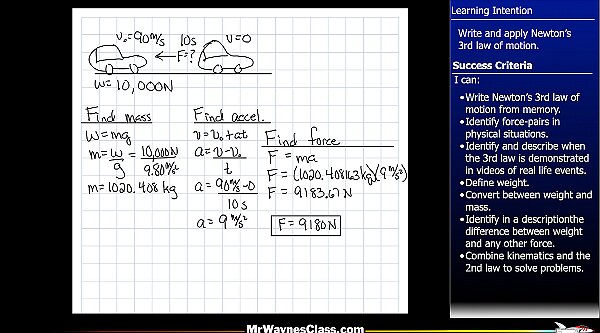 v₀=90m/s 10s v=0
F=?
w=10,000N
Find mass
W=mg
m=w/g=10,000N/9.80m/s²
m=1020.408 kg
Find accel.
v=v₀+at
a=v-v₀/t
a=90m/s-0/10s
a=9m/s²
Find force
F=ma
F=(1020.408163kg)(9m/s²)
F=9183.67N
F=9180N
Learning Intention
Write and apply Newton's
3rd law of motion.
Success Criteria
I can:
•Write Newton's 3rd law of
motion from memory.
•Identify force-pairs in
physical situations.
•Identify and describe when
the 3rd law is demonstrated
in videos of real life events.
•Define weight.
•Convert between weight and
mass.
•Identify in a descriptionthe
difference between weight
and any other force.
•Combine kinematics and the
2nd law to solve problems.
MrWaynesClass.com